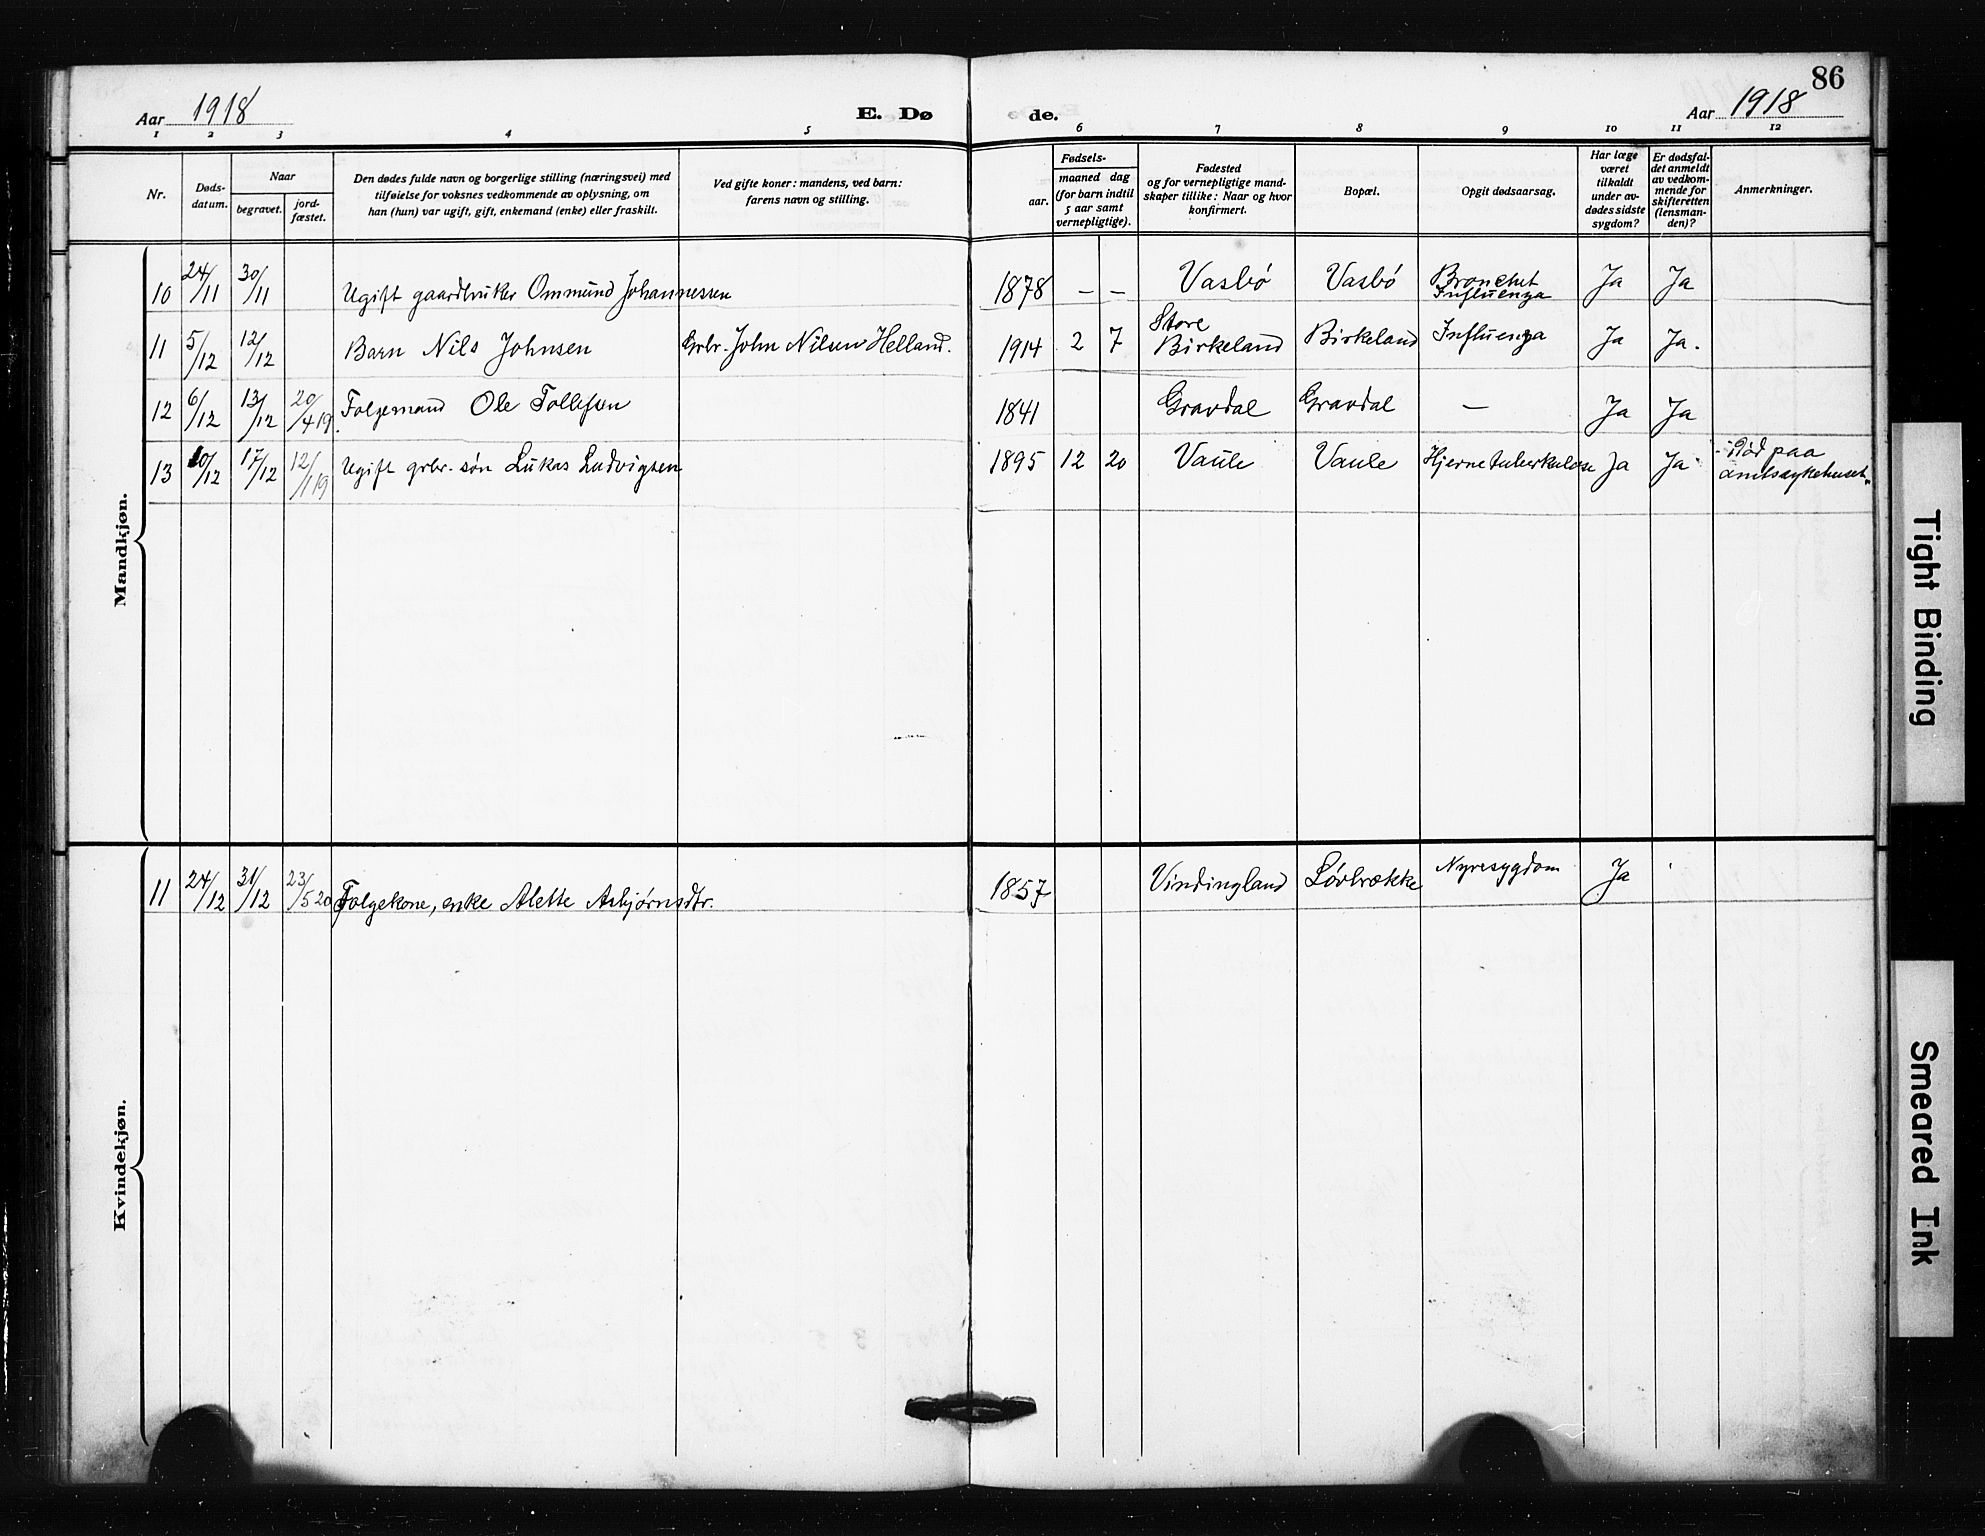 86
Aar 1918 E. Dø de. Aar 1918
1 2 3 4 5 6 7 8 9 10 11 12
Nr.
Døds-
datum.
Naar
begravet.
jord-
fæstet.
Den dødes fulde navn og borgerlige stilling (næringsvei) med
tilføielse for voksnes vedkommende av oplysning, om
han (hun) var ugift, gift, enkemand (enke) eller fraskilt.
Ved gifte koner: mandens, ved barn:
farens navn og stilling.
Fødsels-
aar.
maaned dag
(for barn indtil
5 aar samt
vernepligtige).
Fødested
og for vernepligtige mand-
skaper tillike: Naar og hvor
konfirmert.
Bopæl.
Opgit dødsaarsag.
Har læge
været
tilkaldt
under av-
dødes sidste
sygdom?
Er dødsfal-
det anmeldt
av vedkom-
mende for
skifteretten
(lensman-
den)?
Anmerkninger.
Mandkjøn.
10 24/11 30/11 Ugift gaardbruker Ommund Johannessen 1878 — — Vasbø Vasbø Bronchit Ja Ja
Influenza
11 5/12 12/12 Barn Nils Johnsen Grbr. John Nilsen Helland. 1914 2 7 Store Birkeland Influenza Ja Ja.
Birkeland
12 6/12 13/12 20/4 19. Folgemand Ole Tollefsen 1841 Gravdal Gravdal — Ja Ja
13 10/12 17/12 12/1 19 Ugift grbr. søn Lukas Ludvigsen 1895 12 20 Vaule Vaule Hjernetuberkulose Ja Ja Død paa
amtssykehuset.
Kvindekjøn.
11 24/12 31/12 23/5 20 Folgekone, enke Alette Asbjørnsdtr. 1857 Vindingland Løvbrække Nyresygdom Ja
Tight Binding
Smeared Ink